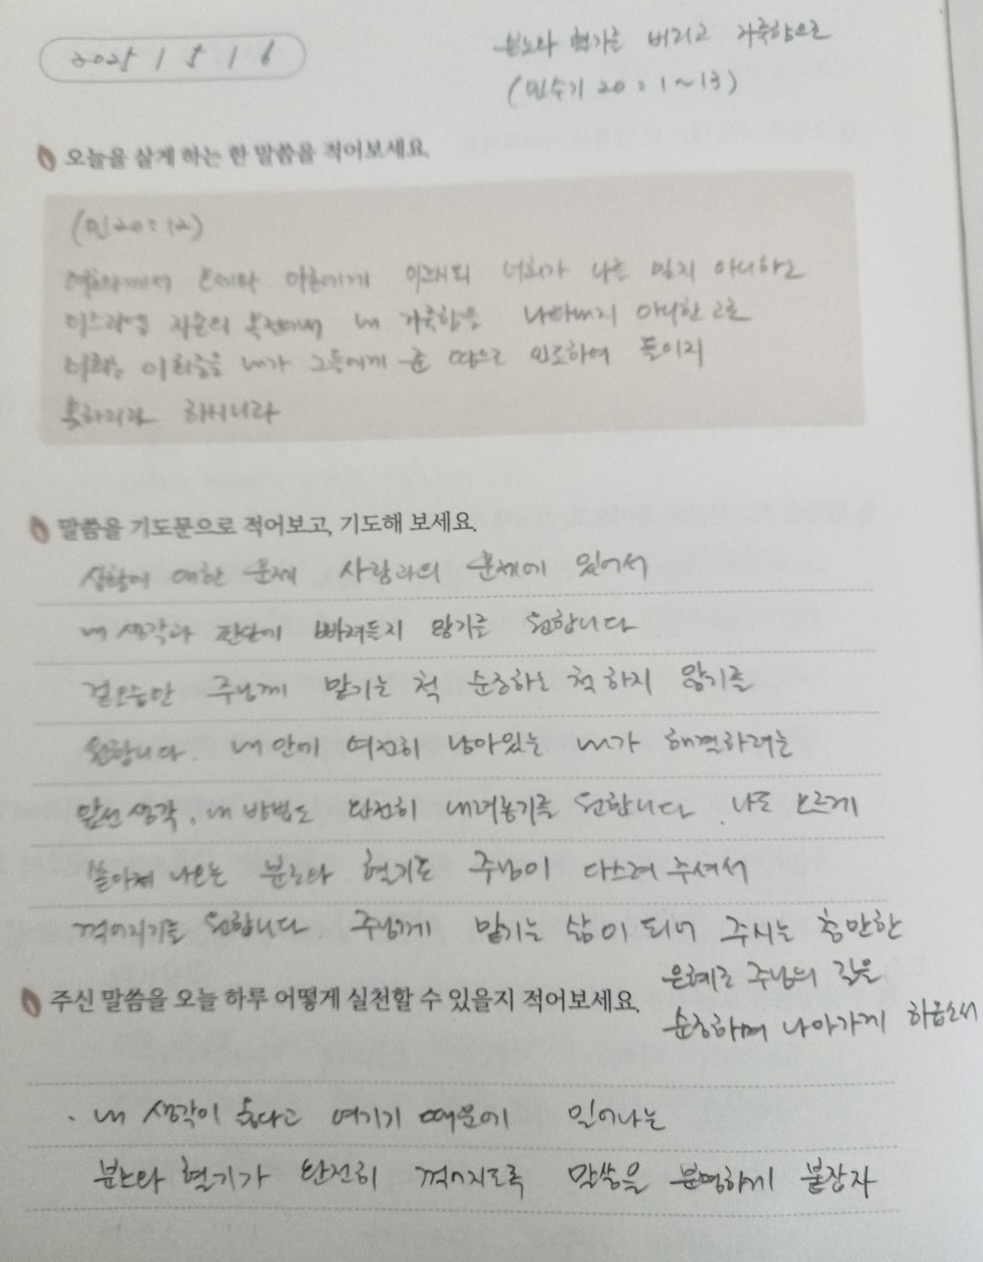 2025 / 5 / 6
분노와 혈기를 버리고 거룩함으로
(민수기 20:1~13)
오늘을 살게 하는 한 말씀을 적어보세요.
(민20:12)
여호와께서 모세와 아론에게 이르시되 너희가 나를 믿지 아니하고
이스라엘 자손의 목전에서 내 거룩함을 나타내지 아니한 고로
너희는 이 회중을 내가 그들에게 준 땅으로 인도하여 들이지
못하리라 하시니라
말씀을 기도문으로 적어보고, 기도해 보세요.
상황에 대한 문제 사람과의 문제에 있어서
내 생각과 판단에 빠져들지 않기를 원합니다
겉모습만 주님께 맡기는 척 순종하는 척 하지 않기를
원합니다. 내 안에 여전히 남아있는 내가 해결하려는
앞선 생각, 내 방법도 완전히 내려놓기를 원합니다. 나도 모르게
쏟아져 나오는 분노와 혈기도 주님이 다스려 주셔서
꺾어지기를 원합니다. 주님께 맡기는 삶이 되어 주시는 충만한
은혜로 주님의 길을
순종하며 나아가게 하옵소서
주신 말씀을 오늘 하루 어떻게 실천할 수 있을지 적어보세요.
. 내 생각이 옳다고 여기기 때문에 일어나는
분노와 혈기가 완전히 꺾어지도록 말씀을 분명하게 붙잡자